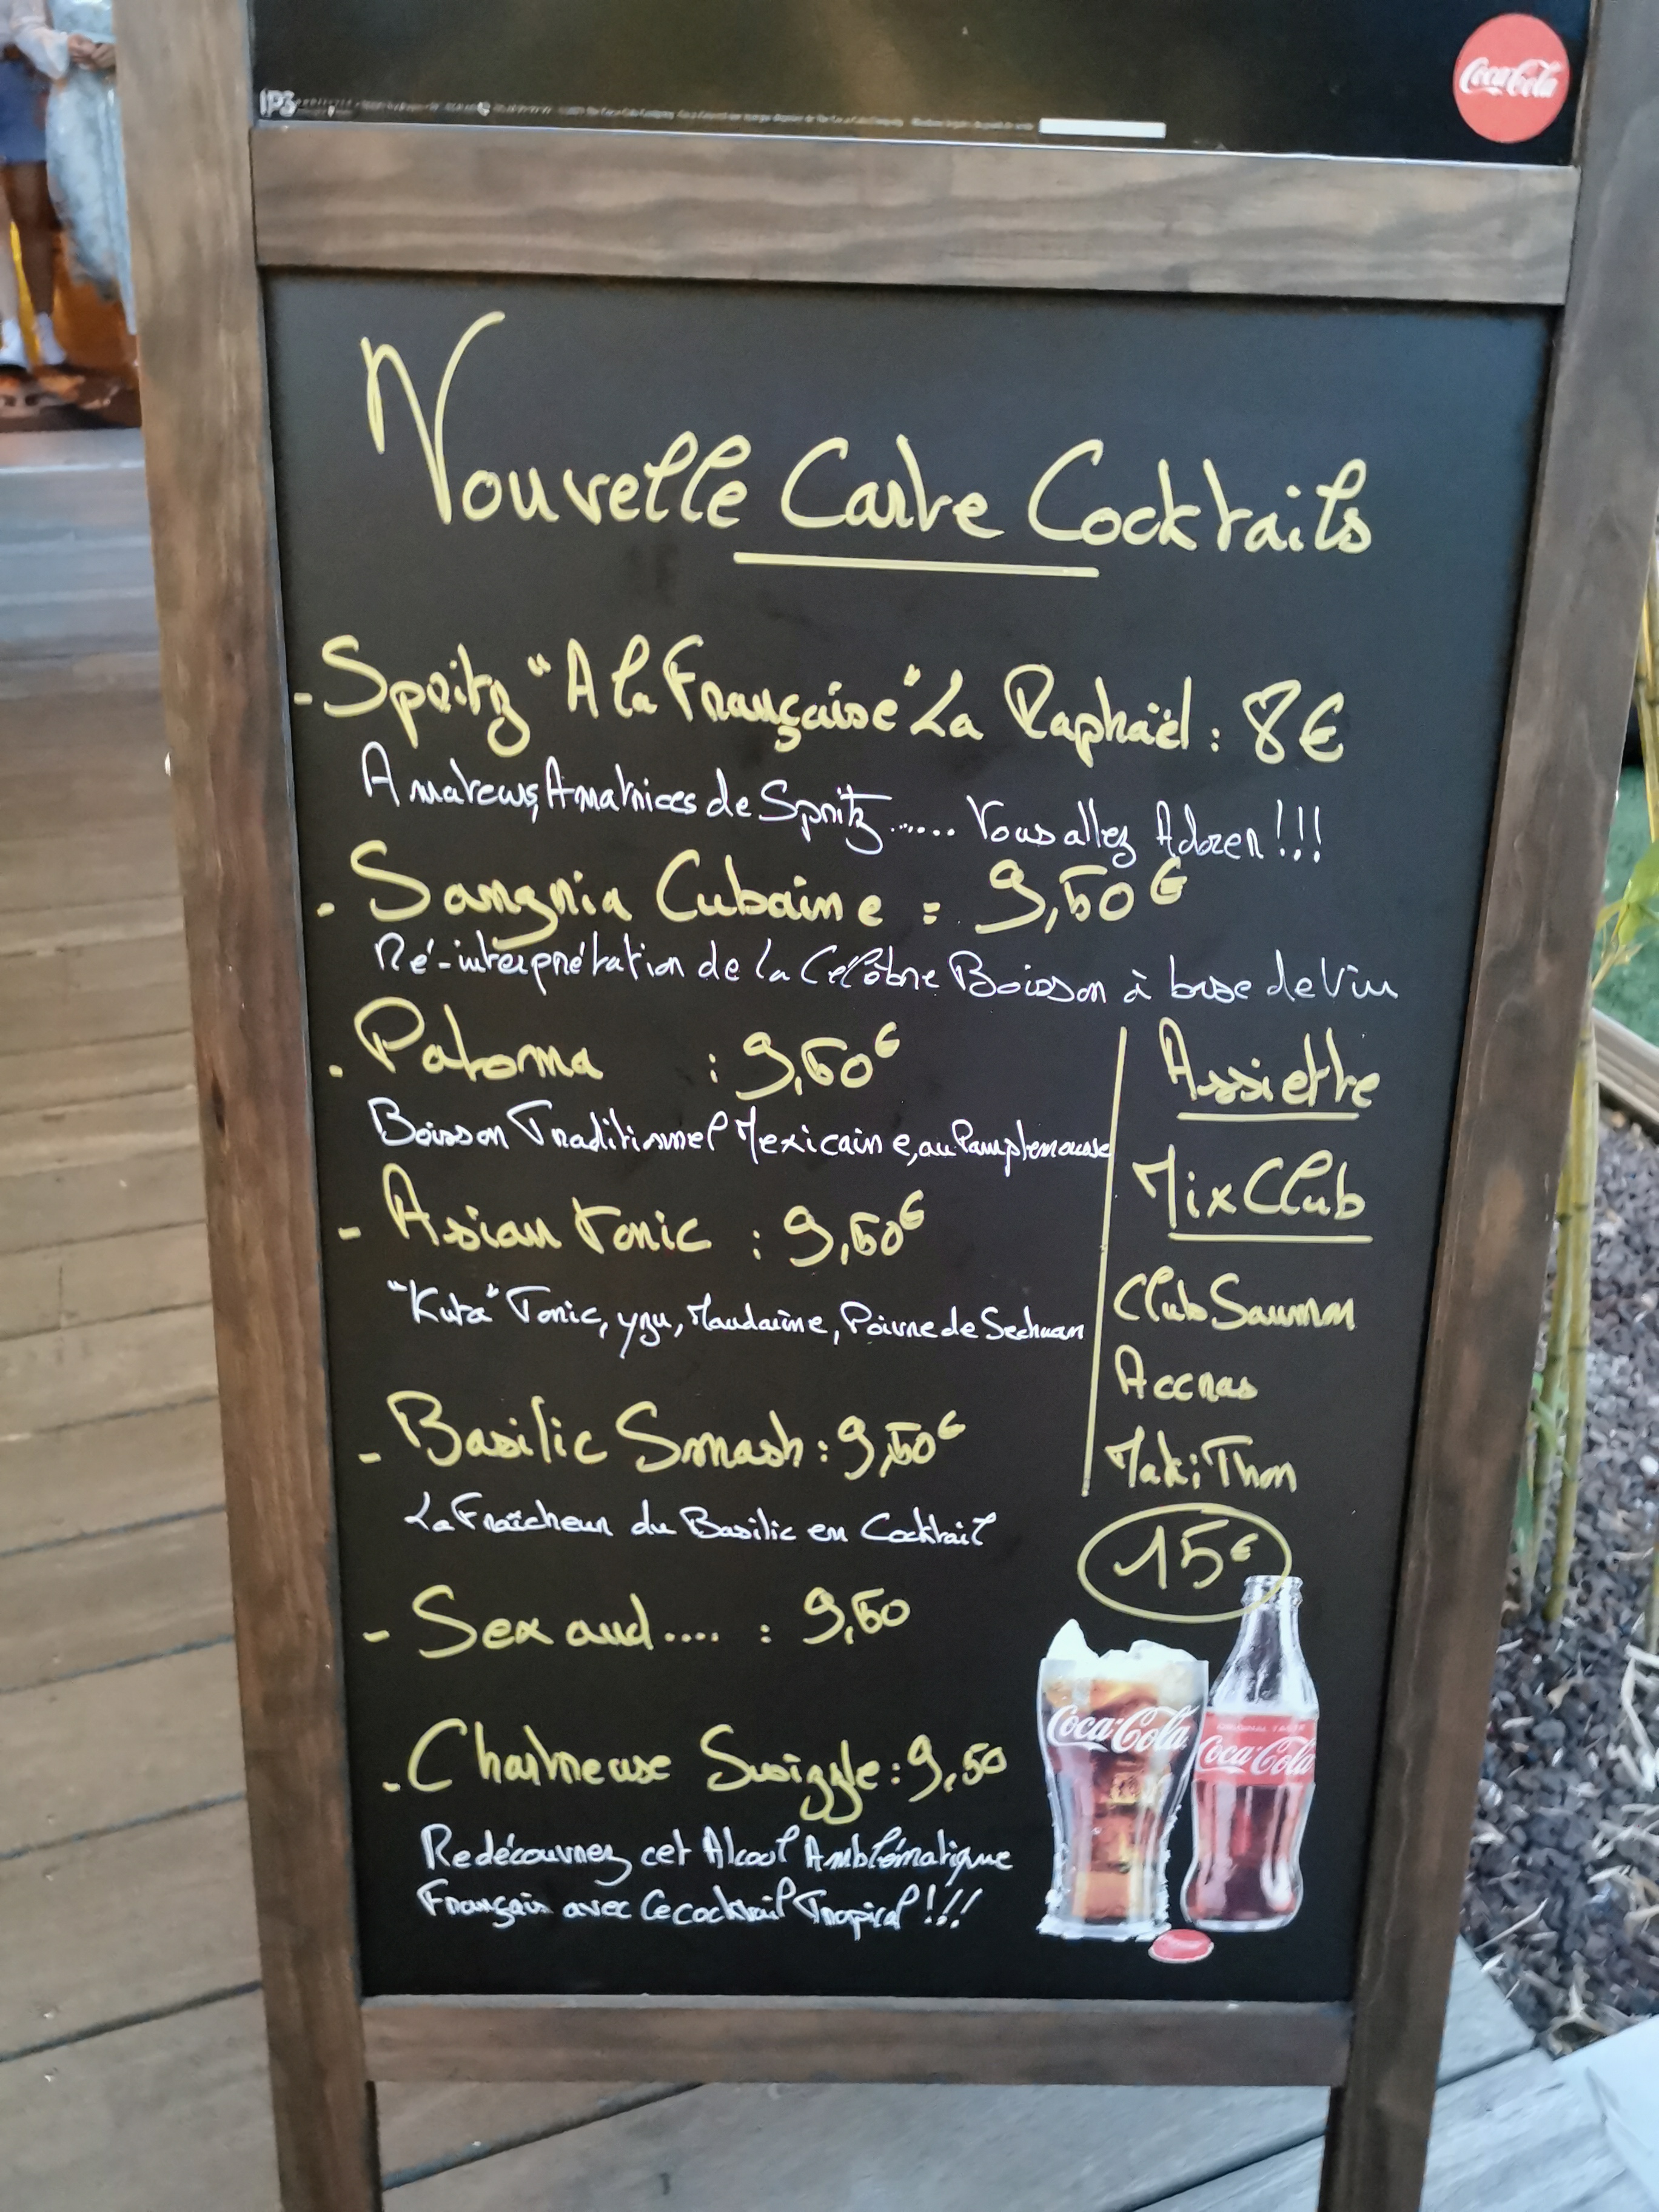 Coca-Cola
IPS
Nouvelle Carte Cocktails
- Spritz "A la Française" La Raphaël : 8€
Amateurs, Amatrices de Spritz...... Vous allez Adorer !!!
- Sangria Cubaine : 9,50€
Ré-interprétation de la Célèbre Boisson à base de Vin
- Paloma : 9,50€
Boisson Traditionnel Mexicaine, au Pamplemousse
- Asian tonic : 9,50€
Tonic, Mandarine, Poivre de Sechuan
- Basilic Smash : 9,50€
La Fraîcheur du Basilic en Cocktail
- Sex aud.... : 9,50
- Chartreuse Swizzle : 9,50
Redécouvrez cet Alcool Amblématique
Français avec Ce cocktail Tropical !!!
Assiette
Mix Club
Club Saumon
Accras
Maki Thon
15€
Coca-Cola
ORIGINAL TASTE
Coca-Cola